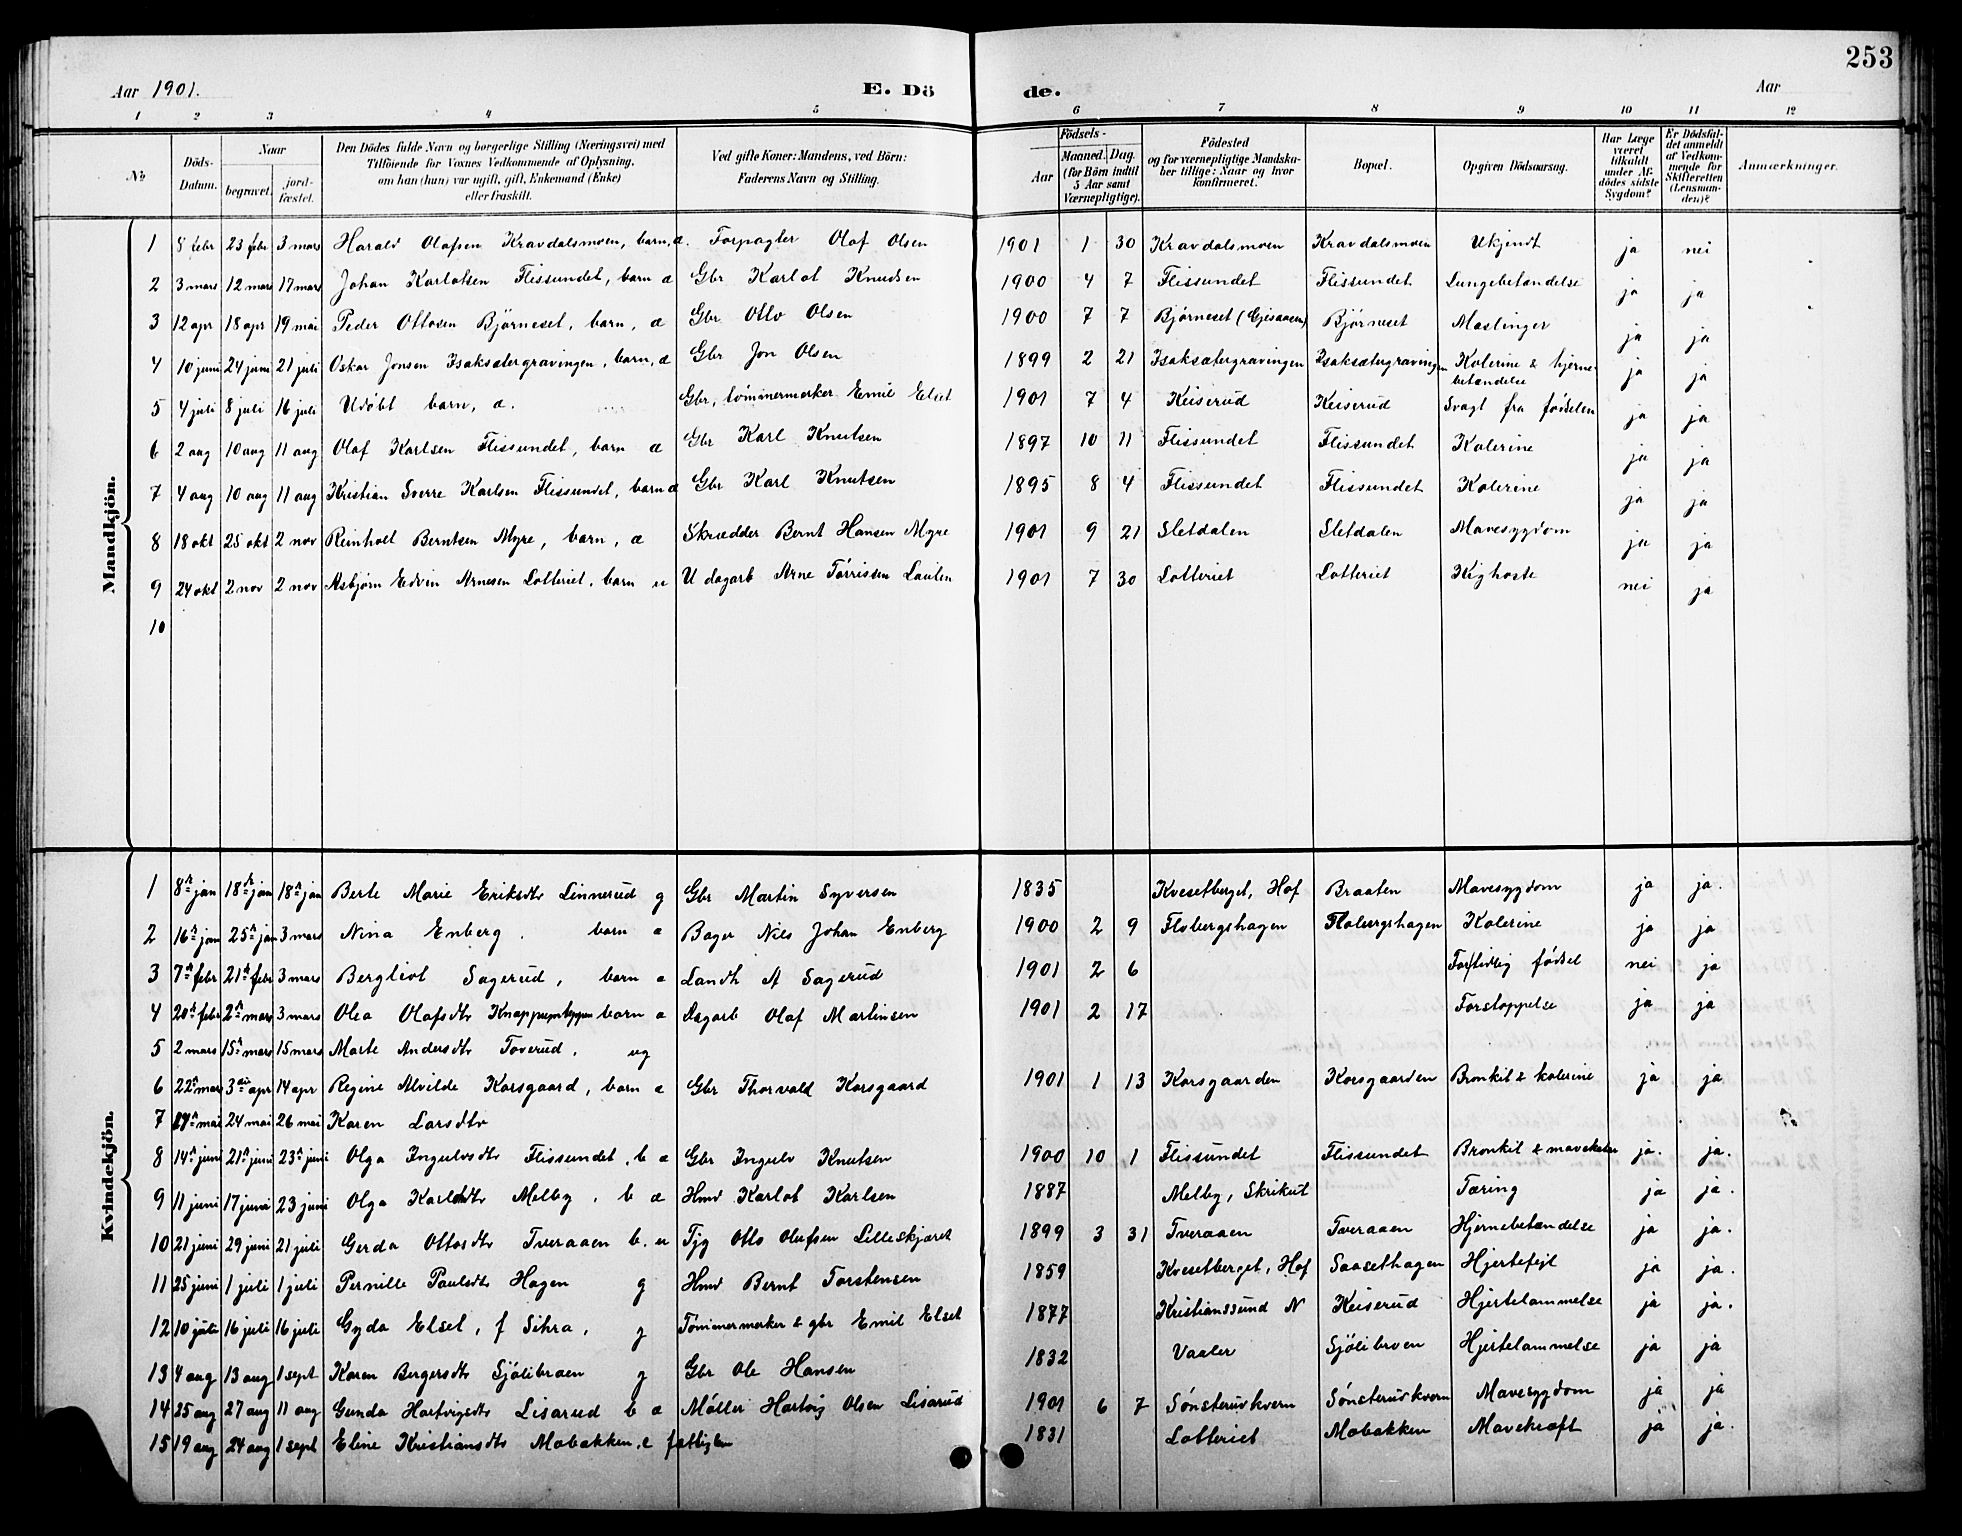 253
Aar 1901. E. Dö de. Aar
1 2 3 4 5 6 7 8 9 10 11 12
No
Döds-Datum.
Naar
begravet.
jord-fæstet.
Den Dödes fulde Navn og borgerlige Stilling (Næringsvei) med
Tilföiende for Voxnes Vedkommende af Oplysning,
om han (hun) var ugift, gift, Enkemand (Enke)
eller fraskilt.
Ved gifte Koner: Mandens, ved Börn:
Faderens Navn og Stilling.
Födsels-
Aar
Maaned. Dag.
(for Börn indtil
5 Aar samt
Værnepligtige).
Födested
og for værnepligtige Mandska-
ber tillige: Naar og hvor
konfirmeret.
Bopæl.
Opgiven Dödsaarsag.
Har Læge
været
tilkaldt
under Af-
dödes sidste
Sygdom?
Er Dödsfal-
det anmeldt
af Vedkom-
mende for
Skifteretten
(Lensman-
den)?
Anmærkninger.
Mandkjön.
1 8 febr 23 febr 3 mars Harald Olafsen Kravdalsmoen, barn, æ. Forpagter Olaf Olsen 1901 1 30 Kravdalsmoen Kravdalsmoen Ukjendt ja nei
2 3 mars 12 mars 17 mars Johan Karlotsen Flissundet, barn æ Gbr Karlot Knudsen 1900 4 7 Flissundet Flissundet Lungebetændelse ja ja
3 12 apr 18 apr 19 mai Peder Ottosen Bjørneset, barn, æ Gbr Otto Olsen 1900 7 7 Bjørneset (Gjesaaen) Bjørneset Mæslinger ja ja
4 10 juni 24 juni 21 juli Oskar Jonsen Isaksætergravingen, barn, æ Gbr Jon Olsen 1899 2 21 Isaksætergravingen Isaksætergravingen Kolerine & hjerne-
betændelse ja ja
5 4 juli 8 juli 16 juli Udøbt barn, æ. Gbr, tømmermerker Emil Elset 1901 7 4 Keiserud Keiserud Svagt fra fødselen ja ja
6 2 aug 10 aug 11 aug Olaf Karlsen Flissundet, barn æ Gbr Karl Knutsen 1897 10 11 Flissundet Flissundet Kolerine ja ja
7 4 aug 10 aug 11 aug Kristian Sverre Karlsen Flissundet, barn æ Gbr Karl Knutsen 1895 8 4 Flissundet Flissundet Kolerine ja ja
8 18 okt 25 okt 2 nov Reinholt Berntsen Myre, barn, æ Skrædder Bernt Hansen Myre 1901 9 21 Sletdalen Sletdalen Mavesygdom ja ja
9 24 okt 2 nov 2 nov Asbjørn Edvin Arnesen Lotteriet, barn u Udagarb Arne Tørrissen Lauten 1901 7 30 Lotteriet Lotteriet Kighoste nei ja
10
Kvindekjön.
1 8de jan 18de jan 18de jan Berte Marie Eriksdtr Linnerud g Gbr Martin Syversen 1835 Kvesetberget, Hof Braaten Mavesygdom ja ja.
2 16de jan 25de jan 3 mars Nina Enberg. barn æ Bager Nils Johan Enberg 1900 2 9 Flobergshagen Flobergshagen Kolerine ja ja
3 7de febr 21de febr 3 mars Bergliot Sagerud, barn æ Landh A Sagerud 1901 2 6 Fortidlig fødsel nei ja
4 20de febr 2den mars 3 mars Olea Olafsdtr barn æ Dagarb Olaf Martinsen 1901 2 17 Forstoppelse ja ja
5 2 mars 15de mars 15 mars Marte Andersdtr Toverud. ug
6 22de mars 3die apr 14 apr Regine Alvilde Korsgaard, barn æ Gbr Thorvald Korsgaard 1901 1 13 Korsgaarden Korsgaarden Bronkit & kolerine ja ja
7 17de mai 24 mai 26 mai Karen Larsdtr
8 14de juni 21de juni 23de juni Olga Ingulvsdtr Flissundet, b æ Gbr Ingulv Knutsen 1900 10 1 Flissundet Flissundet Bronkit & mavekatar ja. ja.
9 11 juni 17 juni 23 juni Olga Karlotsdtr Melby, b æ Hmd Karlot Karlsen 1887 Melby, Skrikut Tæring ja ja.
10 21 juni 29 juni 21 juli Gerda Ottosdtr Tveraaen b. u Tjg Otto Olufsen Lilleskjæret 1899 3 31 Tveraaen Tveraaen Hjernebetændelse ja ja.
11 25 juni 1 juli 1 juli Pernille Paulsdtr Hagen g Hmd Bernt Torstensen 1859 Kvesetberget, Hof Saasethagen Hjertefejl ja ja.
12 10 juli 16 juli 16 juli Gyda Elset, f Sihra, g Tømmermerker & gbr Emil Elset 1877 Kristianssund N Keiserud Hjertelammelse ja ja.
13 4 aug 13 aug 1 sept Karen Bergersdtr Sjölibraen g Gbr Ole Hansen 1832 Vaaler Sjölibroen Hjertelammelse ja ja
14 25 aug 27 aug 11 aug Gunda Hartvigsdtr Lisarud b æ Møller Hartvig Olsen Lisarud 1901 6 7 Sønsterudkvern Sønsterudkvern Mavesygdom ja ja
15 19 aug 24 aug 1 sept Eline Kristiansdtr Mobakken, e fattiglem 1831 Lotteriet Mobakken Mavekræft ja ja.